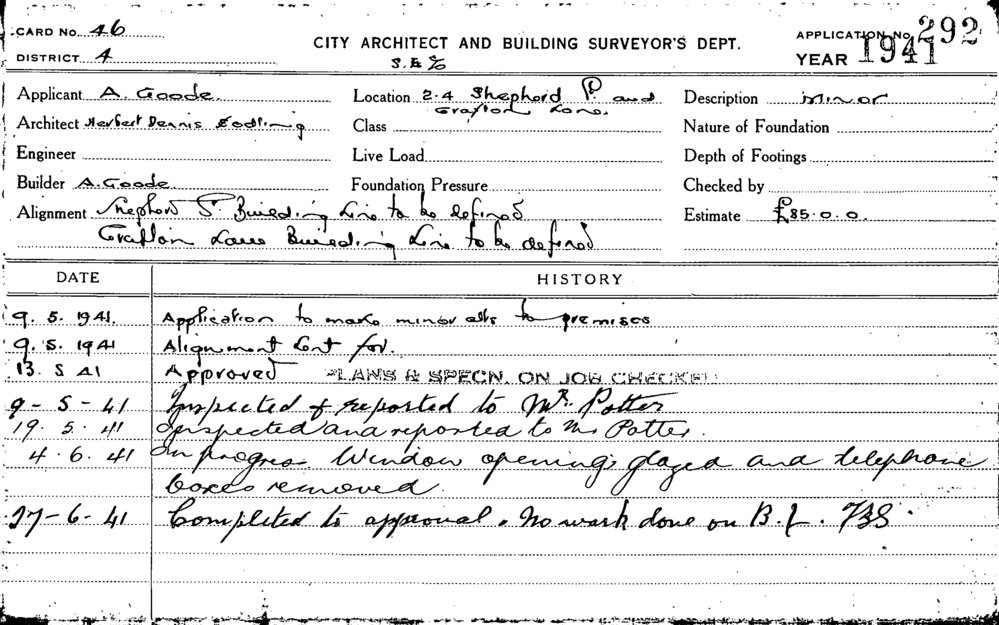 CARD NO. 46
DISTRICT 4
CITY ARCHITECT AND BUILDING SURVEYOR'S DEPT.
APPLICATION NO. 292
YEAR 1941
Applicant A. Goode.
Architect Herbert Dennis
Engineer
Builder A. Goode.
Location 2-4 Shepherd St. and
Grafton Lane.
Class
Live Load
Foundation Pressure
Description Minor
Nature of Foundation
Depth of Footings
Checked by
Estimate £85.0.0.
Alignment Shepherd St. Building Line to be defined
Grafton Lane Building Line to be defined
DATE HISTORY
9. 5. 1941. Application to make minor alts to premises
9. 5. 1941 Alignment sent for.
13. 5 41 Approved PLANS & SPECN. ON JOB CHECKED
9 - 5 - 41 Inspected & reported to Mr. Potter
19. 5. 41 Inspected and reported to Mr Potter.
4. 6. 41 In progress. Window openings glazed and telephone
boxes removed.
27 - 6 - 41 Completed to approval. No work done on B.L.